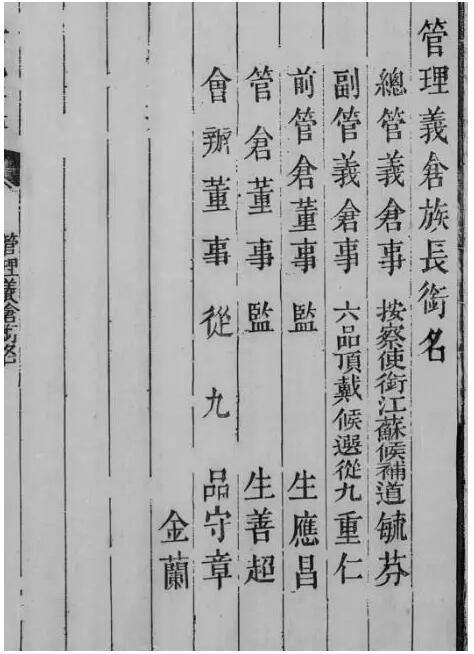 管理義倉族長銜名
總管義倉事 按察使銜江蘇候補道毓芬
副管義倉事 六品頂戴候選從九重仁
前管倉董事監 生應昌
管倉董事監 生善超
會辦董事從九 品守章
金蘭
管理義倉銜名